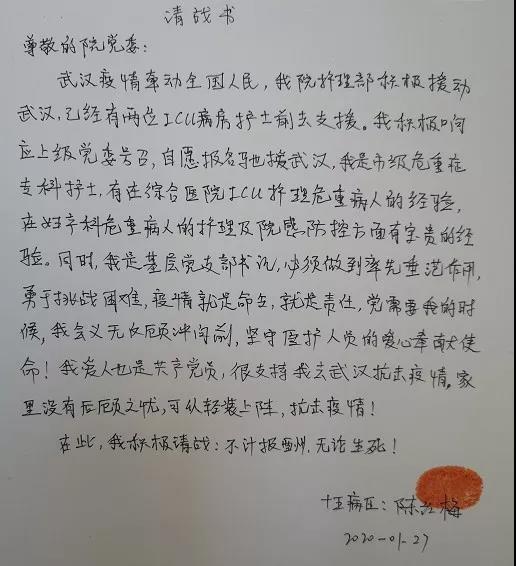 请战书
尊敬的院党委：
武汉疫情牵动全国人民，我院护理部积极援动
武汉，已经有两位ICU病房护士前去支援。我积极响
应上级党委号召，自愿报名驰援武汉，我是市级危重症
专科护士，有在综合医院ICU护理危重病人的经验，
在妇产科危重病人的护理及院感防控方面有宝贵的经
验。同时，我是基层党支部书记，必须做到率先垂范作用，
勇于挑战困难，疫情就是命令，就是责任，党需要我的时
候，我会义无反顾冲向前，坚守医护人员的爱心奉献大使
命！我爱人也是共产党员，很支持我去武汉抗击疫情。家
里没有后顾之忧，可以轻装上阵，抗击疫情！
在此，我积极请战：不计报酬，无论生死！
病区：陈红梅
2020-01-27